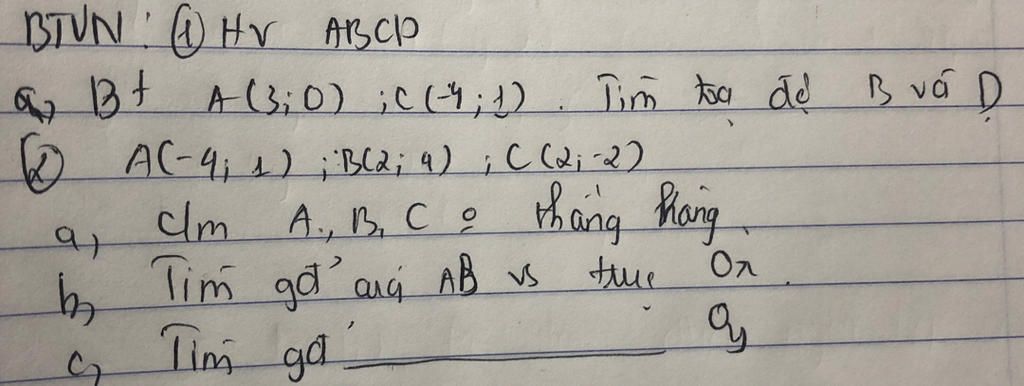 BTVN: ① Hv ABCD
a, Bt A(3;0) ; C(-4;1). Tìm toạ độ B và D
② A(-4; 1) ; B(2; 4) ; C(2; -2)
a, c/m A, B, C o thẳng hàng
b, Tìm gđ' của AB vs trục Ox.
c, Tìm gđ' ———— Oy